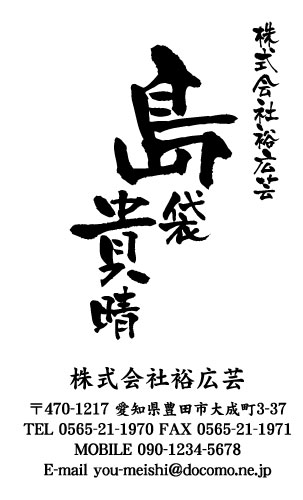 株式会社裕広芸
島袋貴晴
株式会社裕広芸
〒470-1217 愛知県豊田市大成町3-37
TEL 0565-21-1970 FAX 0565-21-1971
MOBILE 090-1234-5678
E-mail you-meishi@docomo.ne.jp